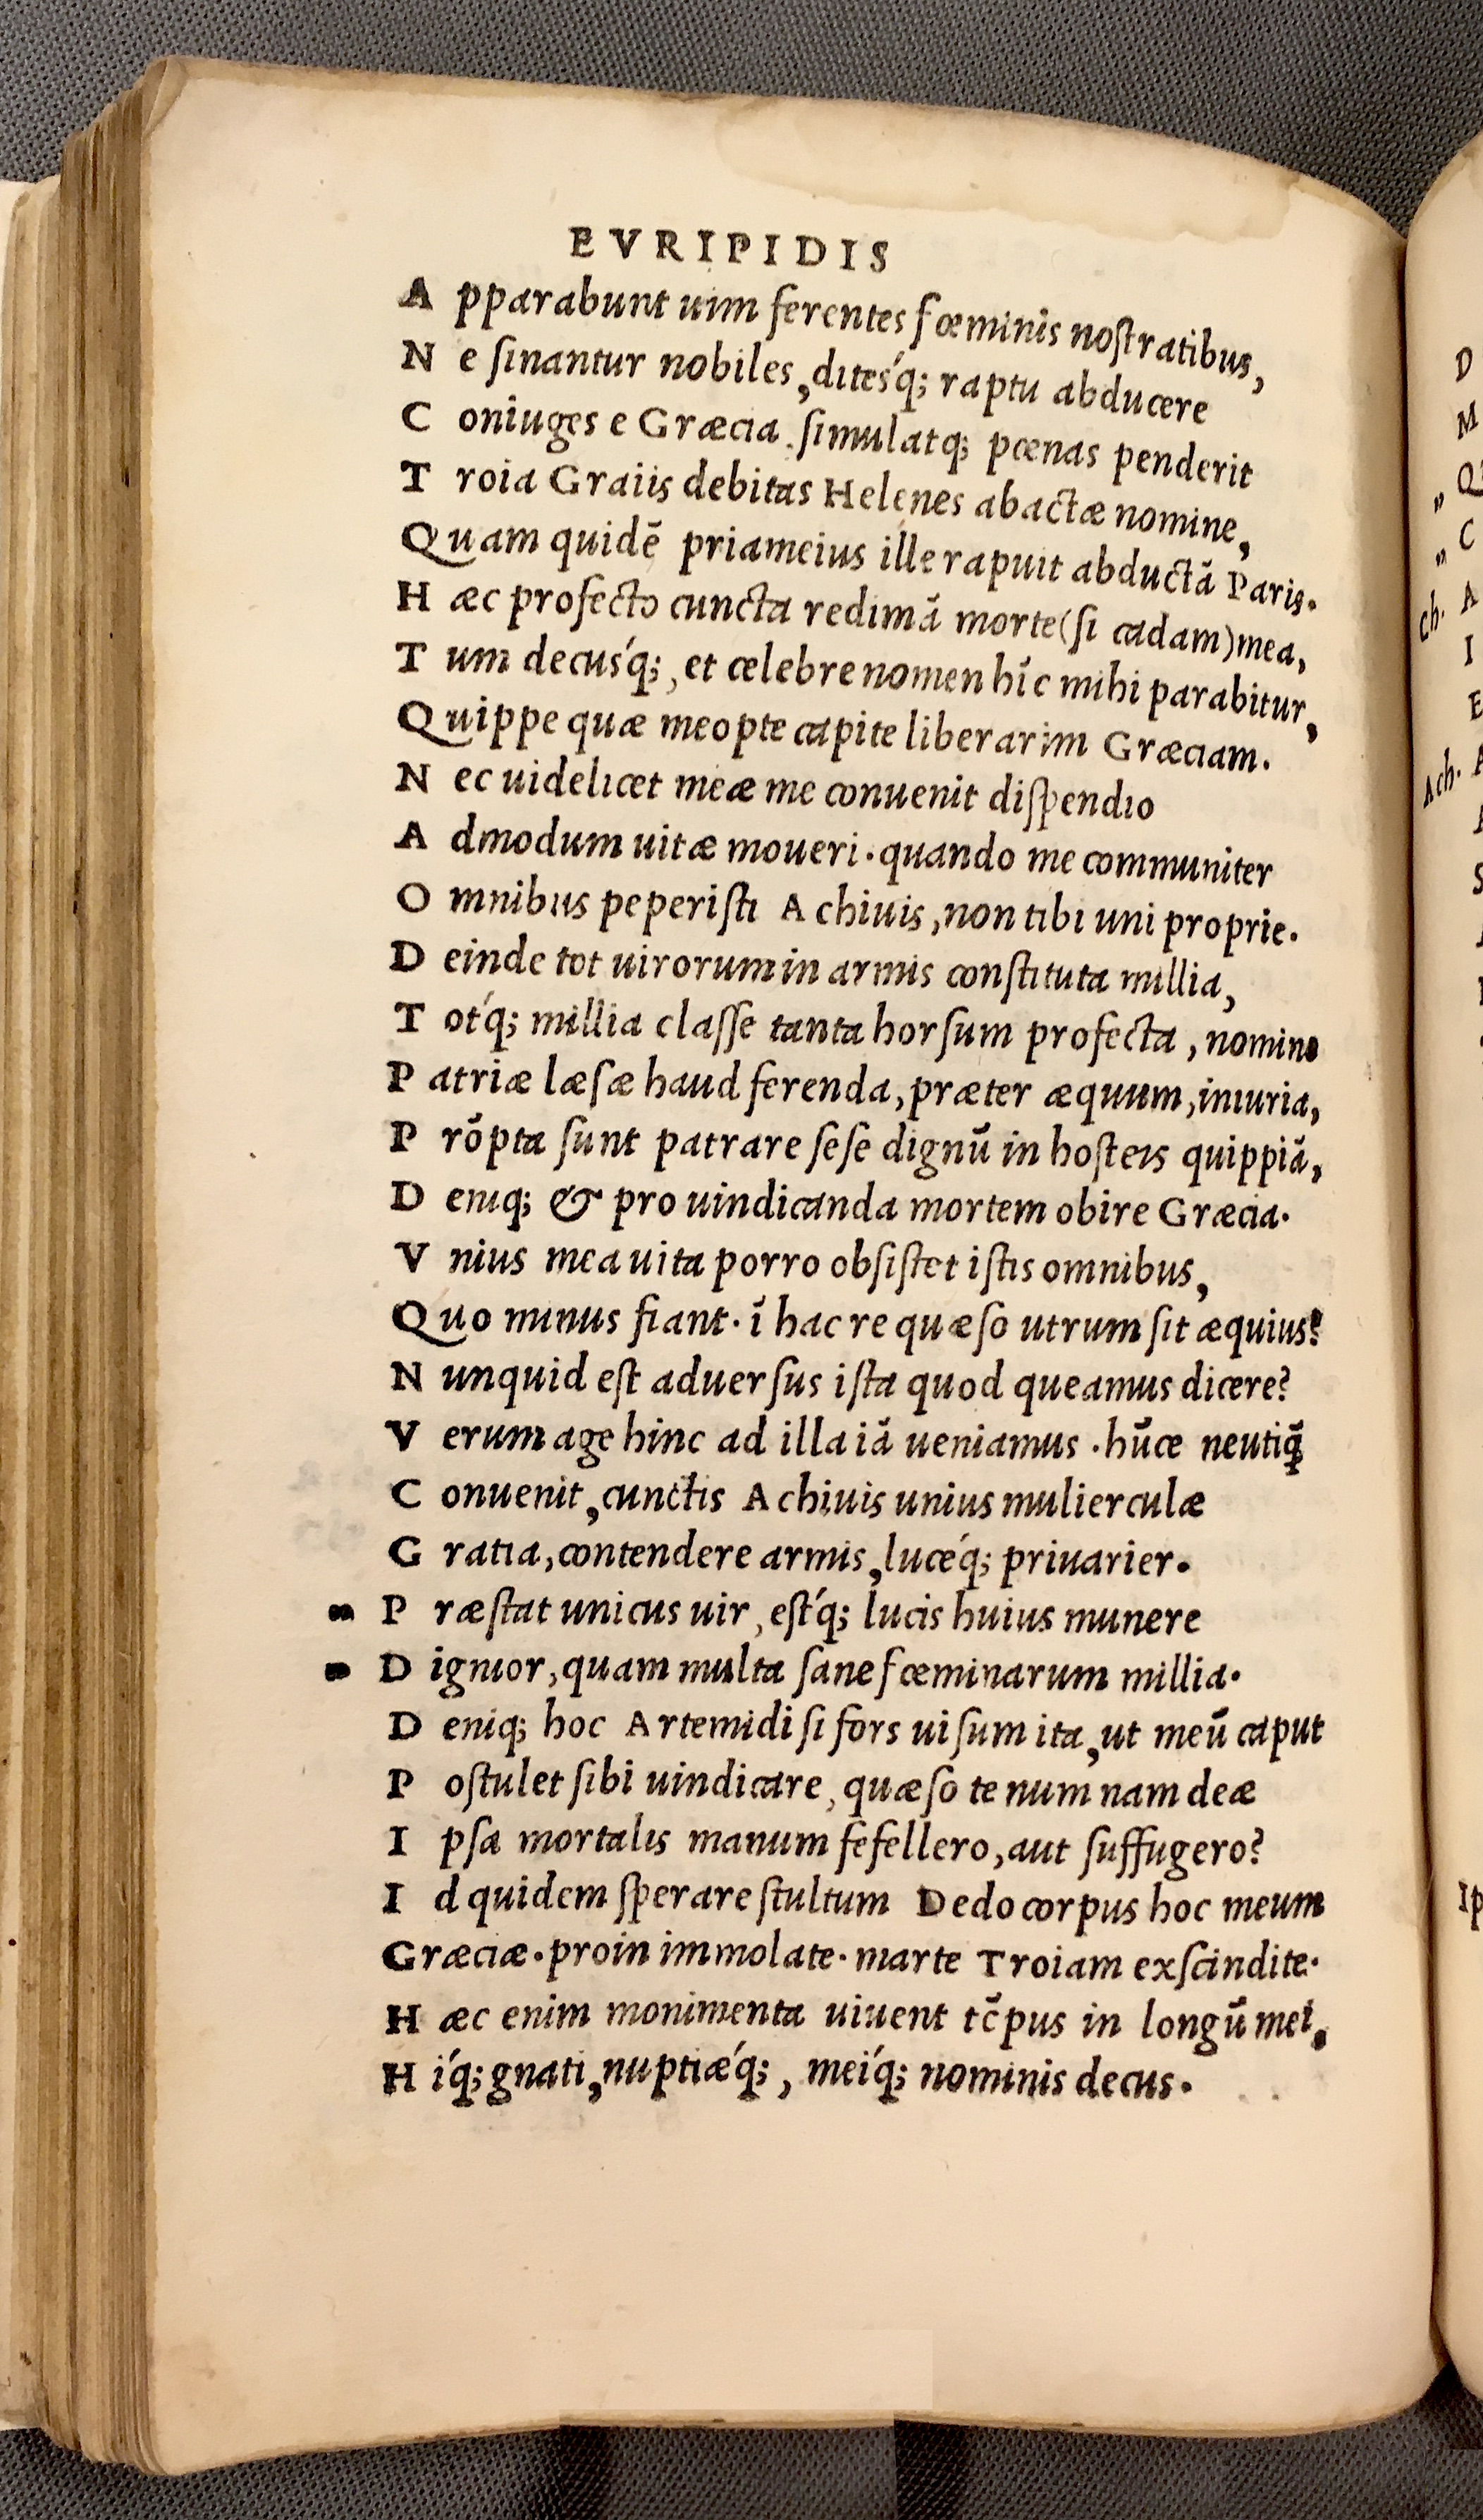 EVRIPIDIS
A pparabunt uim ferentes fœminis noſtratibus,
N e ſinantur nobiles, diteſ́q; raptu abducere
C oniuges e Græcia. ſimulatq; pœnas penderit
T roia Graiis debitas Helenes abactæ nomine,
Quam quidē priameius ille rapuit abductā Paris.
H æc profecto cuncta redimā morte(ſi cadam)mea,
T um decuś́q;, et celebre nomen hīc mihi parabitur,
Quippe quæ meopte capite liberarim Græciam.
N ec uidelicet meæ me conuenit diſpendio
A dmodum uitæ moueri. quando me communiter
O mnibus peperiſti Achiuis, non tibi uni proprie.
D einde tot uirorum in armis conſtituta millia,
T ot́q; millia claſſe tanta horſum profecta, nomine
P atriæ læſæ haud ferenda, præter æquum, iniuria,
P rōpta ſunt patrare ſeſe dignū in hoſteis quippiā,
D eniq; & pro uindicanda mortem obire Græcia.
V nius mea uita porro obſiſtet iſtis omnibus,
Quo minus fiant. ī hac re quæſo utrum ſit æquius?
N unquid eſt aduerſus iſta quod queamus dicere?
V erum age hinc ad illa iā ueniamus. hūce neutiq̄
C onuenit, cunctis Achiuis unius mulierculæ
G ratia, contendere armis, lucéq; priuarier.
„ P ræſtat unicus uir, eſt́q; lucis huius munere
„ D ignior, quam multa ſane fœminarum millia.
D eniq; hoc Artemidi ſi fors uiſum ita, ut meū caput
P oſtulet ſibi uindicare, quæſo te num nam deæ
I pſa mortalis manum fefellero, aut ſuffugero?
I d quidem ſperare ſtultum Dedo corpus hoc meum
Græciæ. proin immolate. marte Troiam exſcindite.
H æc enim monimenta uiuent tēpus in longū mei,
H íq; gnati, nuptiæ´q;, meíq; nominis decus.
D
M
„ Q
„ C
Ch. A
I
E
Ach. A
S
Ip